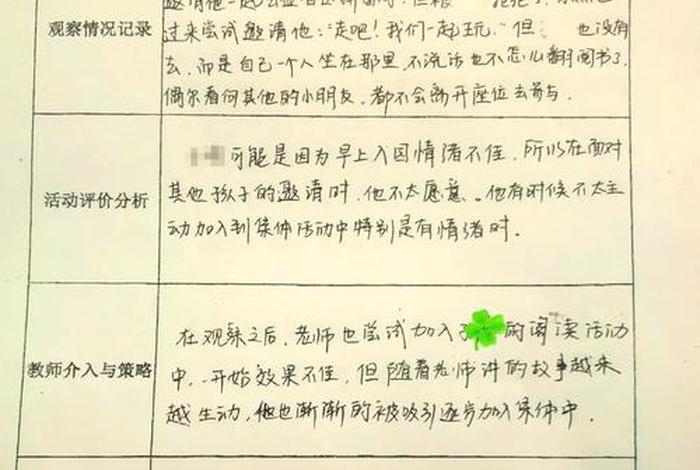 观察情况记录
过来尝试邀请他:"走吧!我们一起玩。"但 也没有
去,而是自己一个人坐在那里,不说话也不怎么翻阅书了,
偶尔看向其他的小朋友,都不会离开座位去参与。
活动评价分析
可能是因为早上入园情绪不佳,所以在面对
其他孩子的邀请时,他不太愿意。他有时候不太主
动加入到集体活动中特别是有情绪时。
教师介入与策略
在观察之后,老师也尝试加入 的阅读活动
中,开始效果不佳,但随着老师讲的故事越来
越生动,他也渐渐的被吸引逐步加入集体中。